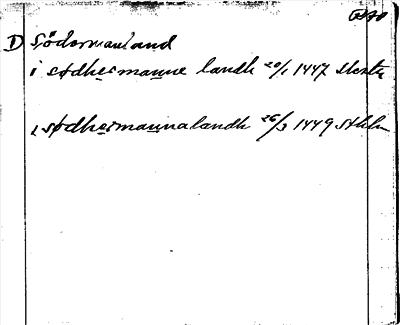 D Södermanland
i sødhermanne landh 20/1 1447
i sødhermannalandh 26/3 1449 Sthlm